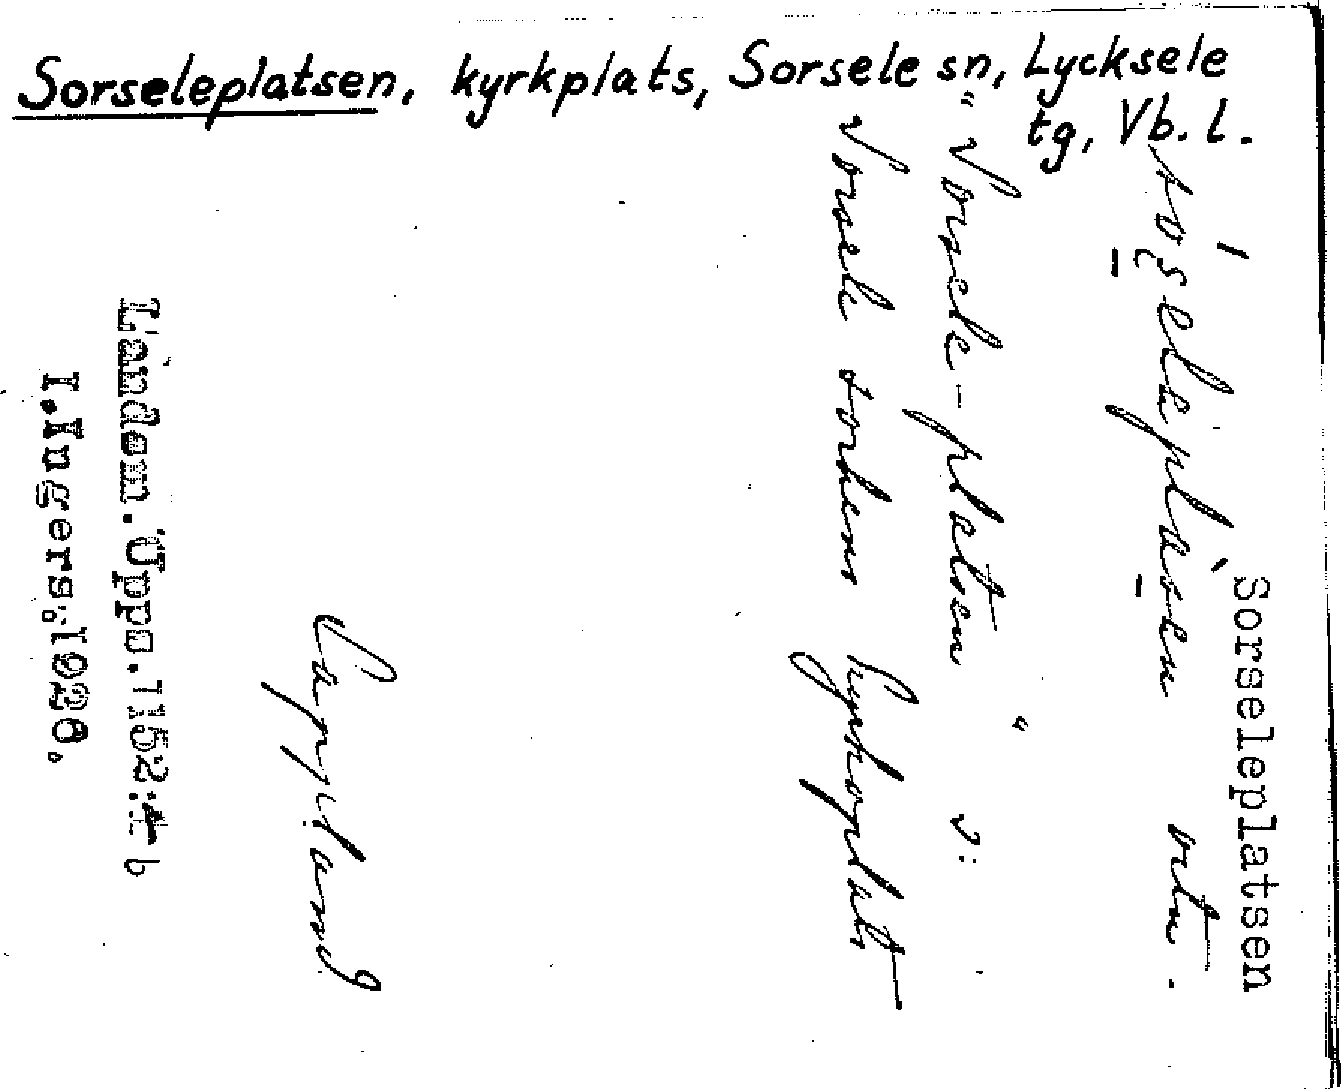 Sorseleplatsen, kyrkplats, Sorsele sn, Lycksele
tg, Vb. l.
Sorseleplatsen
ortn.
"Sorsele-platsen" ɔ:
Sorsele sockens kyrkoplats
Lappland
Landsm. Upps. 1152: b
I. Ingers, 1926.